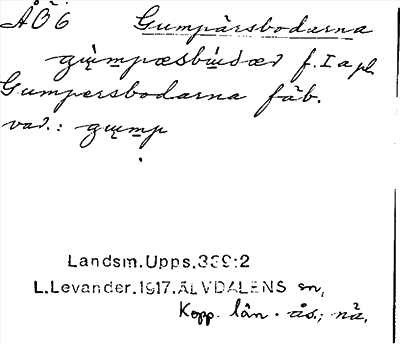 ÅÖ6 Gumpärsbodarna
gų̀mpæsbų́dær f. I a pl.
Gumpersbodarna fäb.
var.: gųmp
Landsm.Upps.339:2
L.Levander.1917.ÄLVDALENS sn,
Kopp. län. ås.; nå.